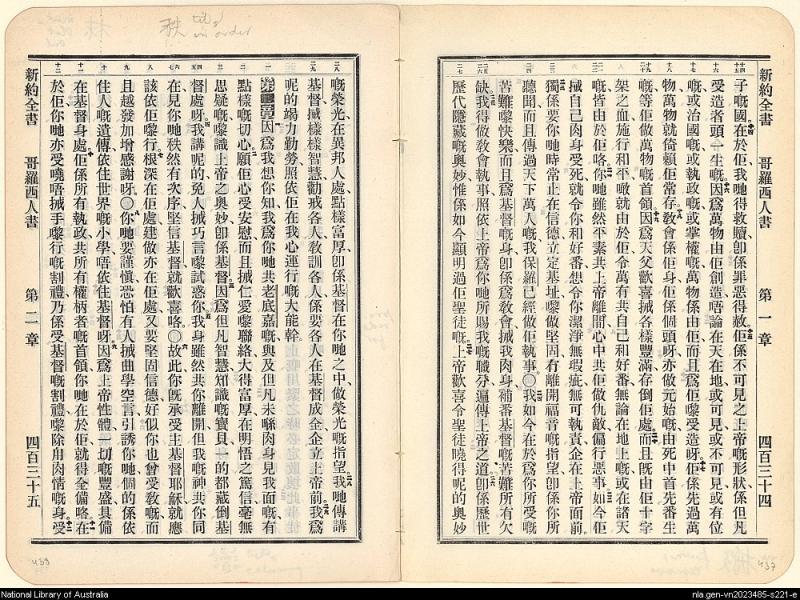 新約全書 哥羅西人書 第一章 四百三十四
子嘅國在於佢我哋得救贖卽係罪惡得赦佢係不可見之上帝嘅形狀係但凡
受造者頭一生嘅因爲萬物由佢創造唔論在天在地或可見或不可見或有位
嘅或治國嘅或執政嘅或掌權嘅萬物係由佢而且爲佢嚟受造呀佢係先過萬
物萬物就倚賴佢常存教會係佢身佢係個頭呀亦做元始嘅由死中首先番生
嘅等佢做萬物嘅首領因爲天父歡喜搣各樣豐滿存倒佢處而且旣由佢十字
架之血施行和平噉就由於佢令萬有共自己和好番無論在地上嘅或在諸天
嘅皆由於佢咯你哋雖然平素共上帝離開心中共佢做仇敵偏行惡事如今佢
搣自己肉身受死就令你和好番想令你潔淨無瑕疵無可執責企在上帝面前
獨係要你哋時常止在信德立定基址嚟做堅固冇離開福音嘅指望卽係你所
聽聞而且傳過天下萬人嘅我保羅已經做佢執事〇我如今在於爲你所受嘅
苦難嚟快樂而且爲基督嘅身卽係爲教會搣我肉身補番基督嘅苦難所有欠
缺我得做教會執事照依上帝爲你哋所賜我嘅職分遍傳上帝之道卽係歷世
歷代隱藏嘅奧妙惟係如今顯明過佢聖徒嘅上帝歡喜令聖徒曉得呢的奧妙
嘅榮光在異邦人處點樣富厚卽係基督在你哋之中做榮光嘅指望我哋傳講
基督搣樣樣智慧勸戒各人敎訓各人係要各人在基督成全企立上帝前我爲
呢的竭力勤勞照依佢在我心運行嘅大能幹
第二章因爲我想你知我爲你哋共老底嘉嘅與及但凡未喺肉身見我面嘅有
點樣嘅切心願佢心受安慰而且搣仁愛嚟聯絡大得富厚在明悟之篤信毫無
思疑嘅嚟識上帝之奧妙卽係基督因爲但凡智慧知識嘅寶貝一的都藏倒基
督處呀我講呢的免人搣巧言嚟試惑你我身雖然共你離開但我嘅神共你同
在見你哋秩然有次序堅信基督就歡喜咯〇故此你旣承受主基督耶穌就應
該依佢嚟行根深在佢處建做亦在佢處又要堅固信德好似你也曾受敎嘅而
且越發加增感謝呀〇你哋要謹愼恐怕有人搣曲學空言引誘你哋個的係依
住人嘅遺傳依住世界嘅小學唔依住基督呀因爲上帝性體一切嘅豐盛具備
在基督身處佢係所有執政共所有權柄者嘅首領你哋在於佢就得全備咯在
於佢你哋亦受曉唔搣手嚟行嘅割禮乃係受基督嘅割禮嚟除用肉情嘅身受
新約全書 哥羅西人書 第二章 四百三十五
秩
in order
439
437
National Library of Australia
nla.gen-vn2023485-s221-e